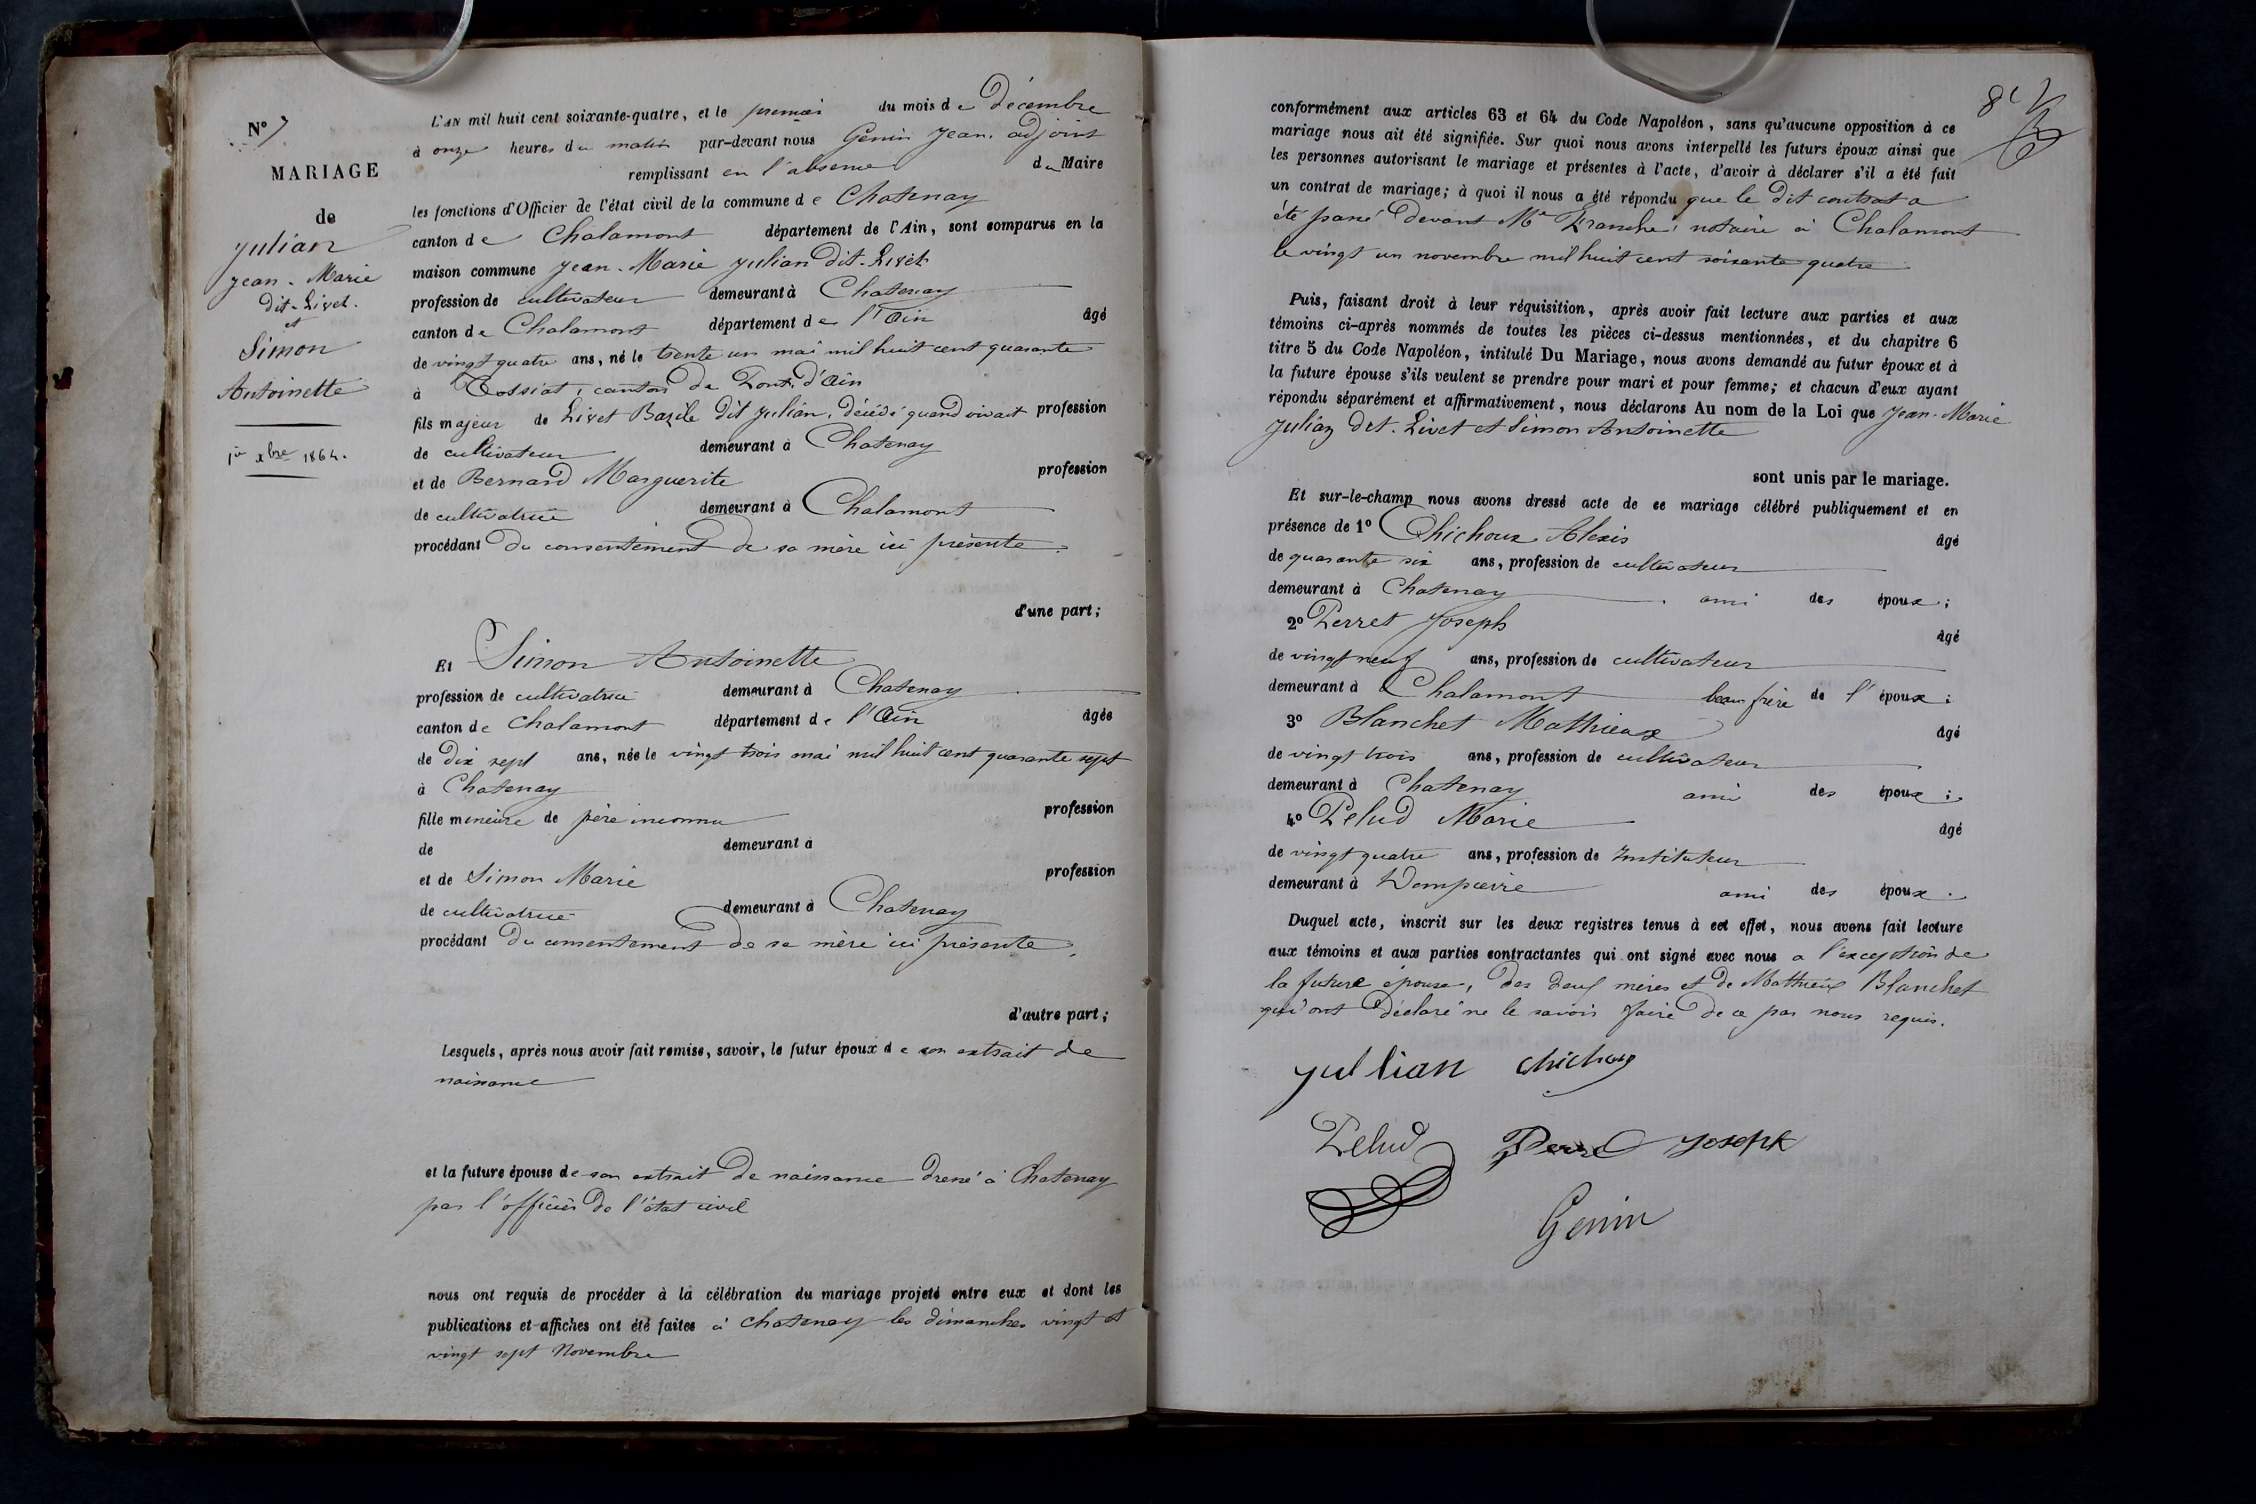 N° 7
MARIAGE
de
Julian
Jean-Marie
dit-Livet.
et
Simon
Antoinette
1er xbre 1864.
L'AN mil huit cent soixante-quatre, et le premier du mois de Décembre
à onze heures du matin par-devant nous Genin Jean, adjoint
remplissant en l'absence du Maire
les fonctions d'Officier de l'état civil de la commune de Chatenay
canton de Chalamont département de l'Ain, sont comparus en la
maison commune Jean-Marie Julian dit-Livet
profession de cultivateur demeurant à Chatenay
canton de Chalamont département de l'Ain âgé
de vingt quatre ans, né le trente un mai mil huit cent quarante
à Tossiat, canton de Pont-d'Ain
fils majeur de Livet Bazile dit Julian, décédé quand vivait profession
de cultivateur demeurant à Chatenay
et de Bernard Marguerite profession
de cultivatrice demeurant à Chalamont
procédant du consentement de sa mère ici présente.
d'une part;
Et Simon Antoinette
profession de cultivatrice demeurant à Chatenay
canton de Chalamont département de l'Ain âgée
de dix sept ans, née le vingt trois mai mil huit cent quarante sept
à Chatenay
fille mineure de père inconnu profession
de demeurant à
et de Simon Marie profession
de cultivatrice demeurant à Chatenay
procédant du consentement de sa mère ici présente.
d'autre part;
Lesquels, après nous avoir fait remise, savoir, le futur époux de son extrait de
naissance
et la future épouse de son extrait de naissance dressé à Chatenay
par l'officier de l'état civil
nous ont requis de procéder à la célébration du mariage projeté entre eux et dont les
publications et affiches ont été faites à Chatenay les dimanches vingt et
vingt sept Novembre
conformément aux articles 63 et 64 du Code Napoléon, sans qu'aucune opposition à ce
mariage nous ait été signifiée. Sur quoi nous avons interpellé les futurs époux ainsi que
les personnes autorisant le mariage et présentes à l'acte, d'avoir à déclarer s'il a été fait
un contrat de mariage; à quoi il nous a été répondu que le dit contrat a
été passé devant Me notaire à Chalamont
le vingt un novembre mil huit cent soixante quatre
Puis, faisant droit à leur réquisition, après avoir fait lecture aux parties et aux
témoins ci-après nommés de toutes les pièces ci-dessus mentionnées, et du chapitre 6
titre 5 du Code Napoléon, intitulé Du Mariage, nous avons demandé au futur époux et à
la future épouse s'ils veulent se prendre pour mari et pour femme; et chacun d'eux ayant
répondu séparément et affirmativement, nous déclarons Au nom de la Loi que Jean-Marie
Julian dit. Livet et Simon Antoinette
sont unis par le mariage.
Et sur-le-champ nous avons dressé acte de ce mariage célébré publiquement et en
présence de 1° Chichoux Alexis âgé
de quarante six ans, profession de cultivateur
demeurant à Chatenay ami des époux;
2° Perret Joseph âgé
de vingt neuf ans, profession de cultivateur
demeurant à Chalamont beau frère de l'époux;
3° Blanchet Mathieux âgé
de vingt trois ans, profession de cultivateur
demeurant à Chatenay ami des époux;
4° Pelud Marie âgé
de vingt quatre ans, profession de Instituteur
demeurant à Dompierre ami des époux.
Duquel acte, inscrit sur les deux registres tenus à cet effet, nous avons fait lecture
aux témoins et aux parties contractantes qui ont signé avec nous a l'exception de
la future épouse, des deux mères et de Mathieux Blanchet
qui ont déclaré ne le savoir faire de ce par nous requis.
Jullian Chichoux
Pelud Perret Joseph
Genin